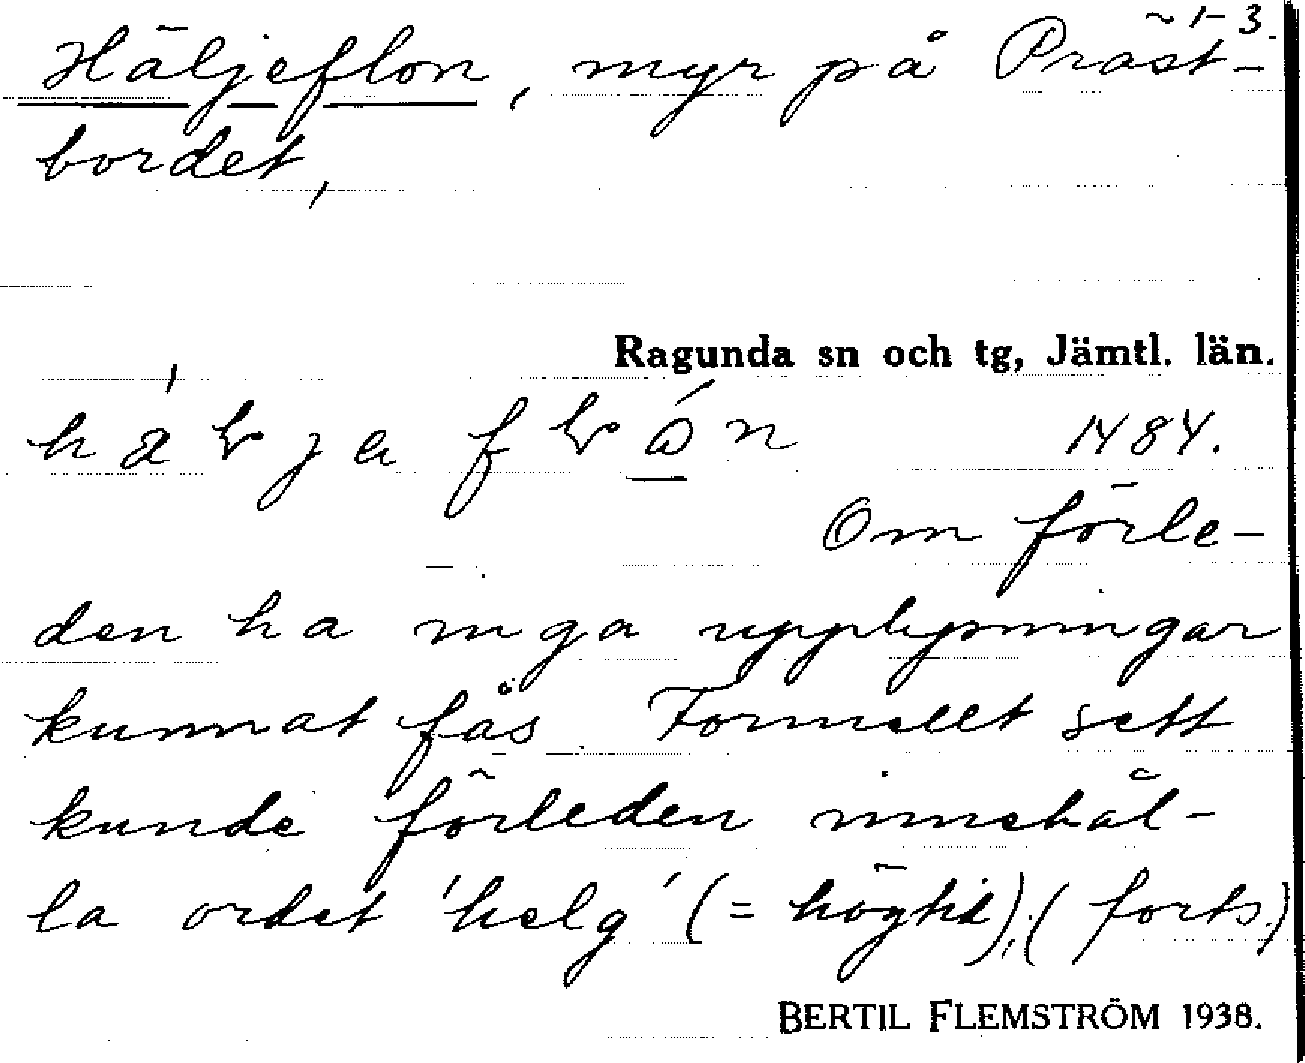 1-3.
Häljeflon, myr på Präst-
bordet,
Ragunda sn och tg, Jämtl. län.
1484.
Om förle-
den ha inga upplysningar
kunnat fås Formellt sett
kunde förleden innehål-
la ordet 'helg' (= högtid); (forts.)
BERTIL FLEMSTRÖM 1938.